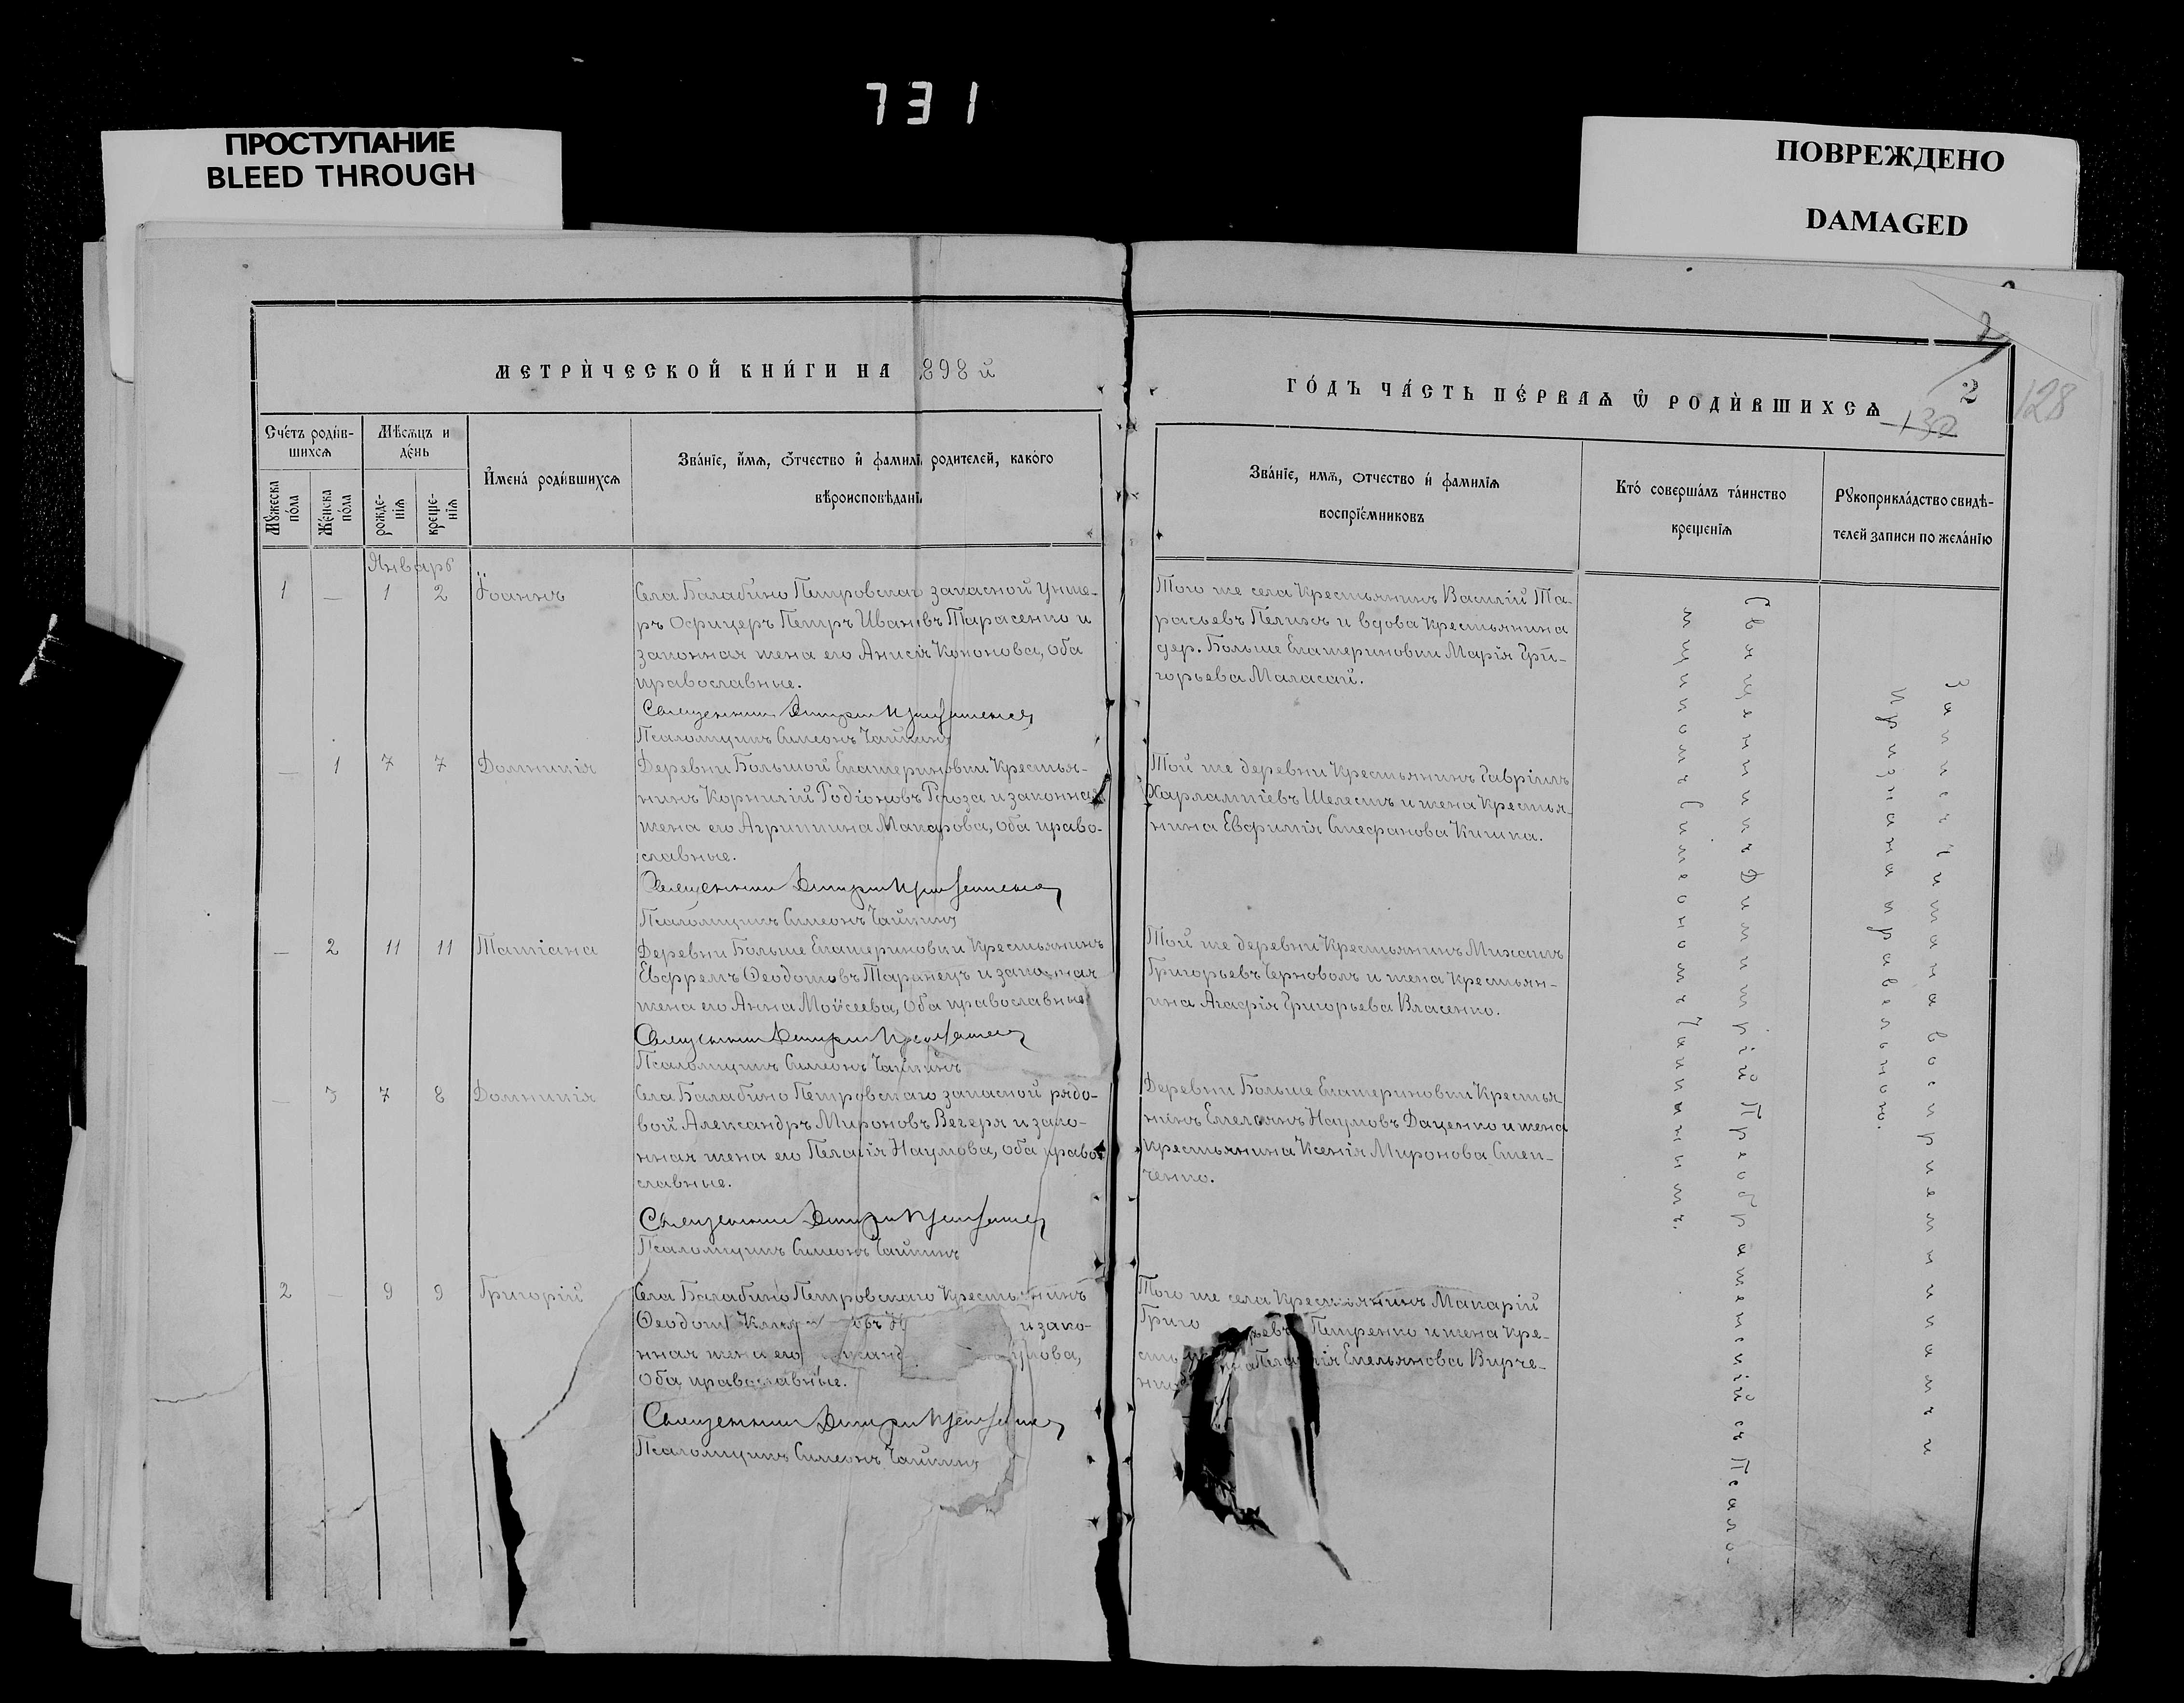 731
ПРОСТУПАНИЕ
BLEED THROUGH
ПОВРЕЖДЕНО
DAMAGED
МЕТРИ́ЧЕСКОЙ КНИ́ГИ НА 898 й
ГО́ДЪ ЧА́СТЬ ПЕ́РВАѦ Ѿ РОДИ́ВШИХСѦ
2
130
128
Сче́тъ роди́в-
шихсѧ
Мѣ́сѧцъ и
де́нь
Мꙋ́жеска
по́ла
Же́нска
по́ла
рожде-
нїѧ
креще-
нїѧ
И҆мена́ роди́вшихсѧ
Зва́нїе, и҆́мѧ, о҆́тчество и҆ фамилї родителей, како́го
вѣроисповѣ́данї
Зва́нїе, имѧ, отчество и҆ фамилїѧ
воспрїе́мниковъ
Кто́ соверша́лъ та́инство
креще́нїѧ
Рꙋкоприкла́дство свидѣ́-
телей записи по жела́нїю
Январь
1 — 1 2 Іоаннъ
Села Балабино Петровскаго запасной Унте-
ръ Офицеръ Петръ Ивановъ Тарасенко и
законная жена его Анисія Кононова, оба
православные.
Священникъ Димитрій Преображенскій
Псаломщикъ Симеонъ Чайкинъ
Того же села Крестьянинъ Василій Та-
расьевъ Пелихъ и вдова крестьянина
дер. Больше Екатериновки Марія Гри-
горьева Маласай.
— 1 7 7 Домникія
Деревни Большой Екатериновки Крестья-
нинъ Корнилій Родіоновъ Рогоза и законная
жена его Агриппина Макарова, оба право-
славные.
Священникъ Димитрій Преображенскій
Псаломщикъ Симеонъ Чайкинъ
Той же деревни Крестьянинъ Гавріилъ
Харлампіевъ Шелестъ и жена Крестья-
нина Евфимія Стефанова Кишка.
— 2 11 11 Татіана
Деревни Больше Екатериновки Крестьянинъ
Евфремъ Ѳеодотовъ Таранецъ и законная
жена его Анна Моисеева, оба православные
Священникъ Димитрій Преображенскій
Псаломщикъ Симеонъ Чайкинъ
Той же деревни Крестьянинъ Михаилъ
Григорьевъ Черноволъ и жена Крестьян-
ина Агафія Григорьева Власенко.
— 3 7 8 Домникія
Села Балабино Петровскаго запасной рядо-
вой Александръ Мироновъ Вегеря и зако-
нная жена его Пелагія Наумова, оба право-
славные.
Священникъ Димитрій Преображенскій
Псаломщикъ Симеонъ Чайкинъ
Деревни Больше Екатериновки Крестья-
нинъ Емельянъ Наумовъ Даценко и жена
крестьянина Ксенія Миронова Степ-
ченко.
2 — 9 9 Григорій
Села Балабино Петровскаго Крестьянинъ
Ѳеодотъ и зако-
нная жена его
оба православные.
Священникъ Димитрій Преображенскій
Псаломщикъ Симеонъ Чайкинъ
Того же села Крестьянинъ Макарій
Григорьевъ Петренко и жена Кре-
стьянина Пелагія Емельянова Вирче-
нко
Священникъ Димитрій Преображенскій съ Псало-
мщикомъ Симеономъ Чайкинымъ.
Запись читана воспріемникамъ и
признана правильною.